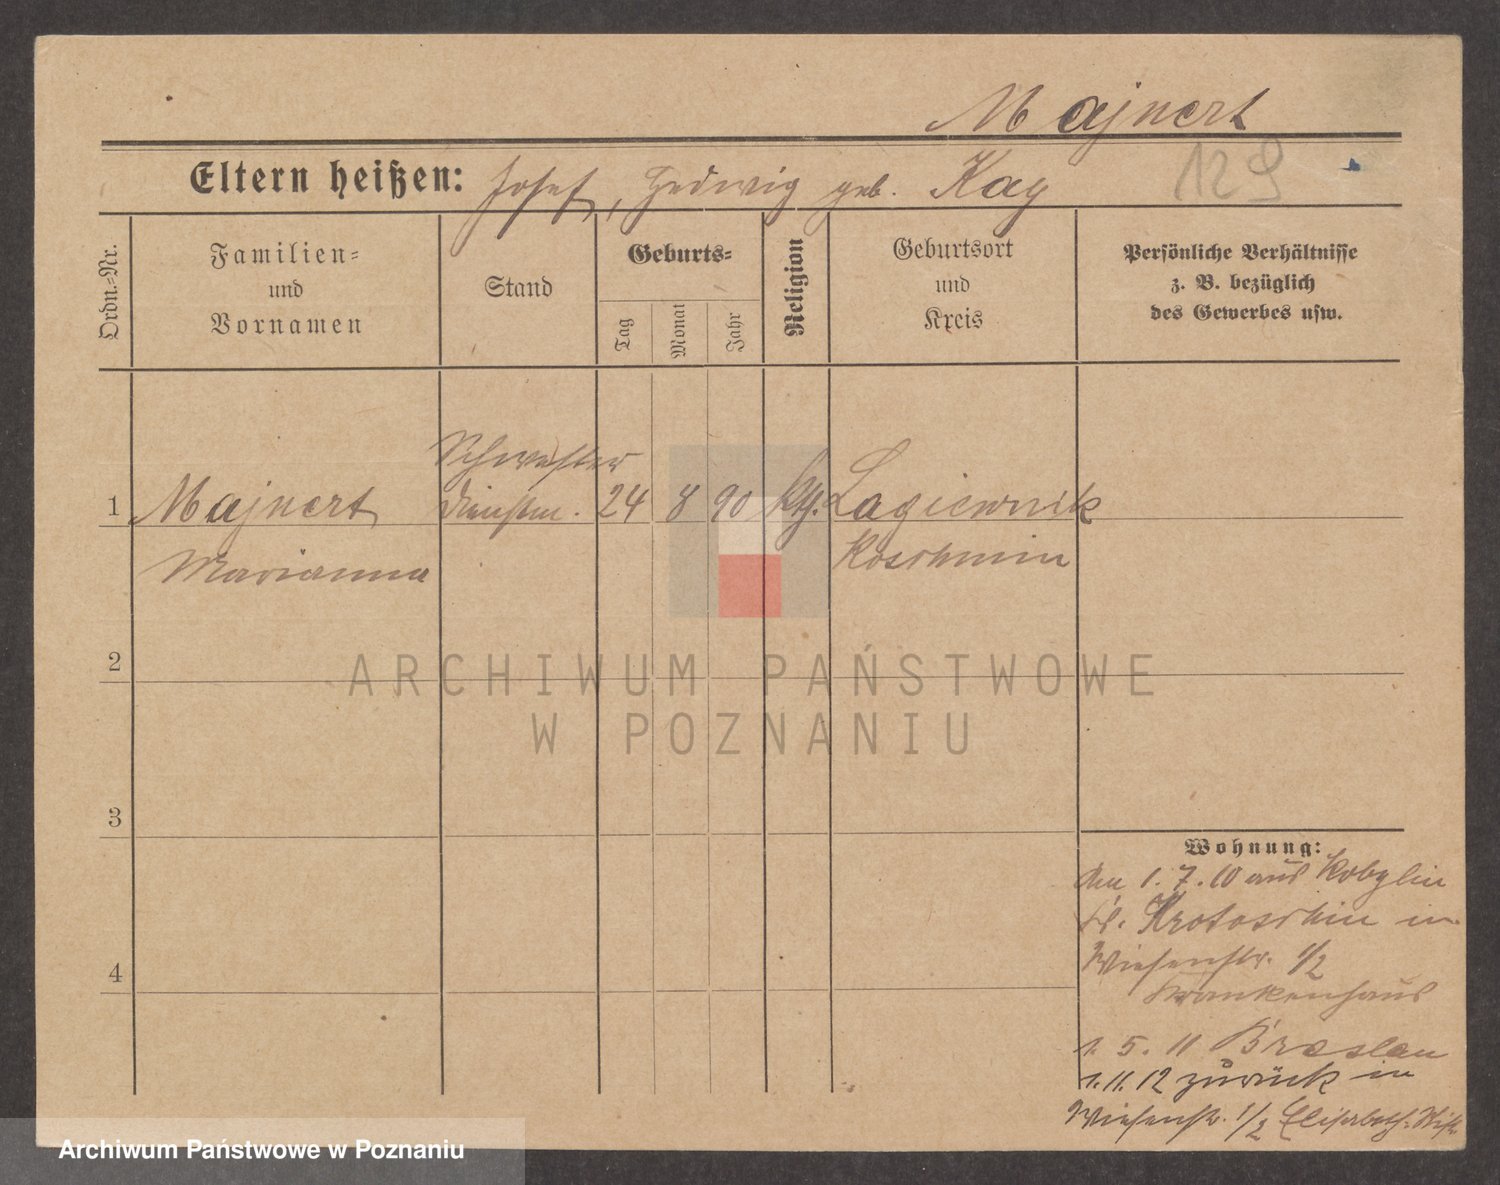 Majnert
Eltern heißen: Josef, Hedwig geb. Kay
129
Ordn.=Nr.
Familien=
und
Vornamen
Stand
Geburts=
Tag
Monat
Jahr
Religion
Geburtsort
und
Kreis
Persönliche Verhältnisse
z. B. bezüglich
des Gewerbes usw.
Schwester
1 Majnert Dienstm. 24 8 90 kth. Lagiewnik
Marianna Koschmin
2
ARCHIWUM PAŃSTWOWE
W POZNANIU
3
4
Wohnung:
den 1.7.10 aus Kobylin
Krotoschin in
Wiesenstr. 1/2
Krankenhaus
1.5.11 Breslau
1.11.12 zurück in
Wiesenstr. 1/2 Elisabeth
Archiwum Państwowe w Poznaniu